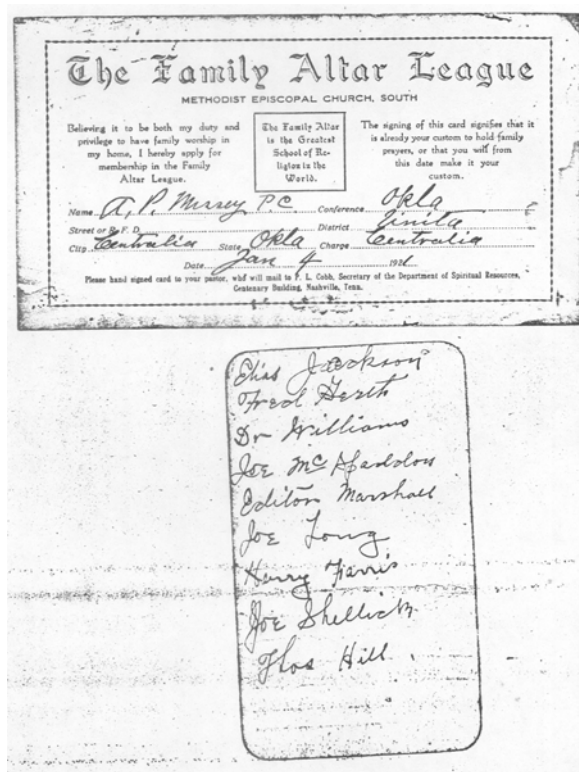 The Family Altar League
METHODIST EPISCOPAL CHURCH, SOUTH
Believing it to be both my duty and
privilege to have family worship in
my home, I hereby apply for
membership in the Family
Altar League.
The Family Altar
is the Greatest
School of Re-
ligion in the
World.
The signing of this card signifies that it
is already your custom to hold family
prayers, or that you will from
this date make it your
custom.
Name A. P. Mussey P.C. Conference Okla
Street or R. F. D. District Vinita
City Centralia State Okla Charge Centralia
Date Jan 4 1921
Please hand signed card to your pastor, who will mail to P. L. Cobb, Secretary of the Department of Spiritual Resources,
Centenary Building, Nashville, Tenn.
Elias Jackson
Fred Gerth
Dr Williams
Joe McSpaddon
Editor Marshall
Joe Long
Harry Farris
Joe
Thos Hill